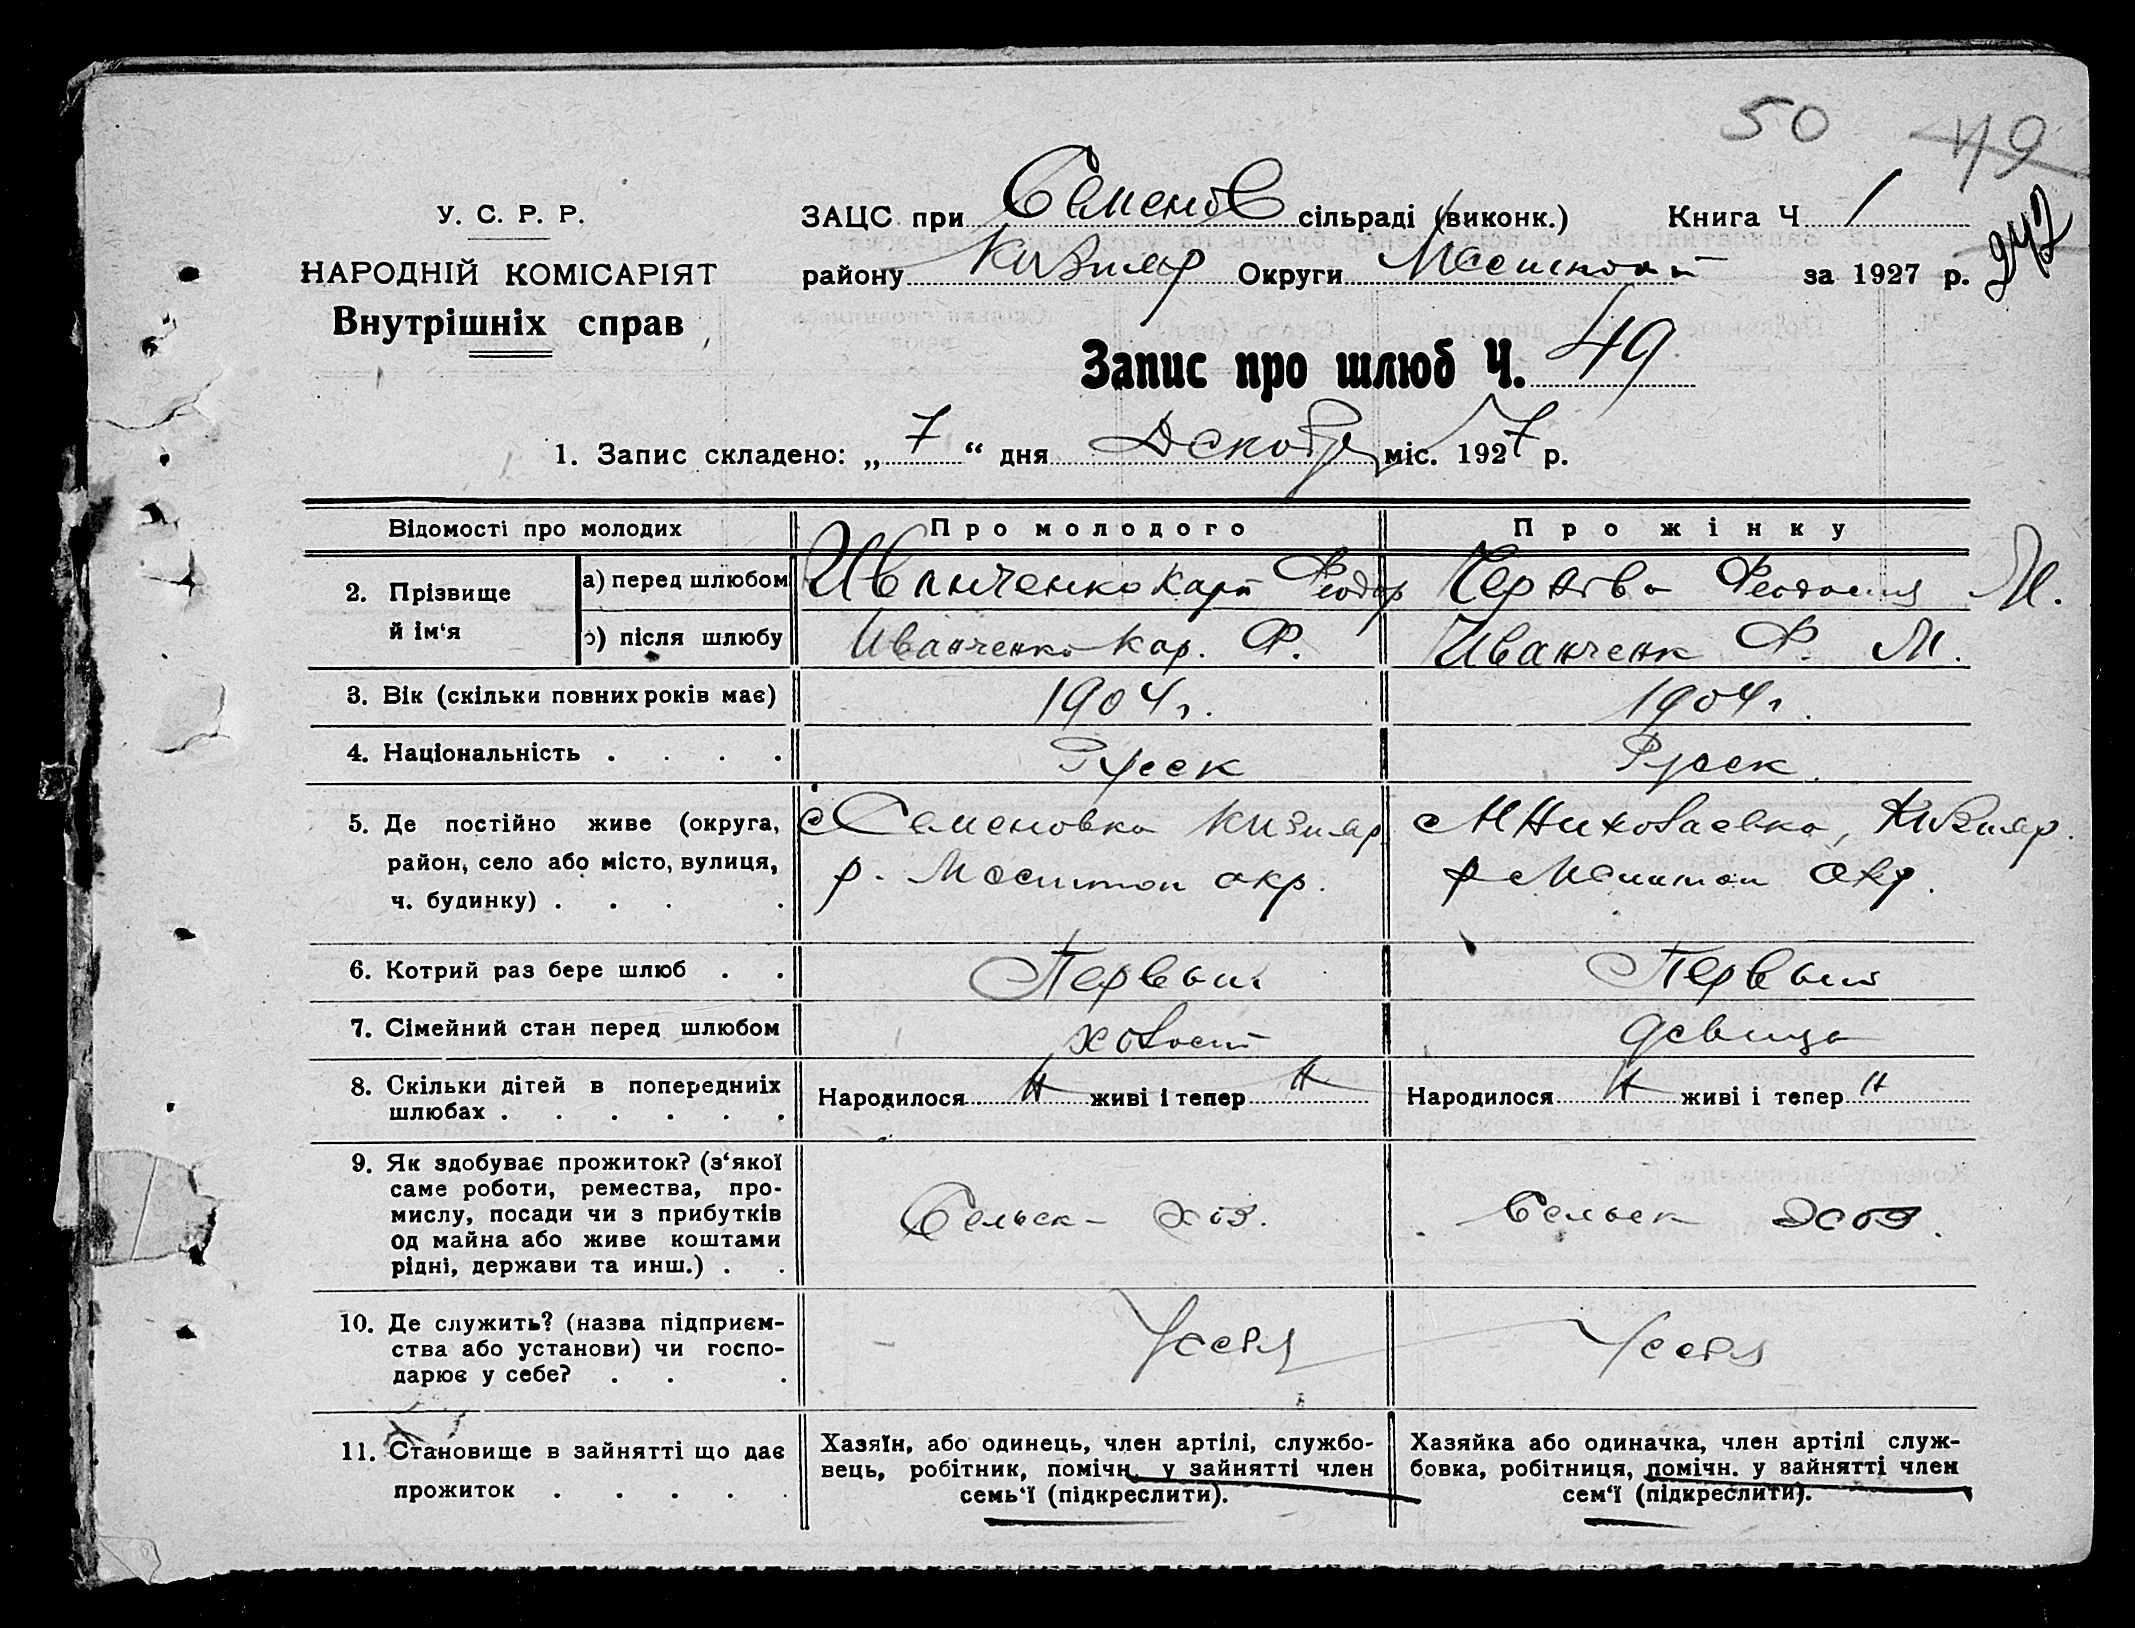 50 49
242
У. С. Р. Р.
НАРОДНІЙ КОМІСАРІЯТ
Внутрішніх справ
ЗАЦС при Семенов сільраді (виконк.) Книга Ч 1
району Кизияр Округи за 1927 р.
Запис про шлюб Ч. 49
1. Запис складено: „ 7 “ дня Декабр міс. 1927 р.
Відомості про молодих Про молодого Про жінку
2. Прізвище й ім‘я
а) перед шлюбом Иванченко Карп Феодор Феодосия М.
б) після шлюбу Иванченко Кар. Ф. Иванченк Ф. М.
3. Вік (скільки повних років має) 1904 г. 1904 г.
4. Національність . . . . Русск Русск.
5. Де постійно живе (округа, с Семеновка Кизияр М Николаевка, Кизияр.
район, село або місто, вулиця, р. Мелитоп окр. р Мелитоп окр.
ч. будинку) . . . .
6. Котрий раз бере шлюб . . Первый Первый
7. Сімейний стан перед шлюбом холост девица
8. Скільки дітей в попередниіх Народилося Н живі і тепер Н Народилося Н живі і тепер Н
шлюбах . . . . . .
9. Як здобуває прожиток? (з‘якої
саме роботи, ремества, про-
мислу, посади чи з прибутків Сельск- хоз. Сельск хоз.
од майна або живе коштами
рідні, держави та инш.) . .
10. Де служить? (назва підприєм-
ства або установи) чи госпо- У себя У себя
дарює у себе? . . .
11. Становище в зайнятті що дає
прожиток . . . . .
Хазяїн, або одинець, член артілі, службо-
вець, робітник, помічн. у зайнятті член
семь‘ї (підкреслити).
Хазяйка або одиначка, член артілі служ-
бовка, робітниця, помічн. у зайнятті член
сем‘ї (підкреслити).